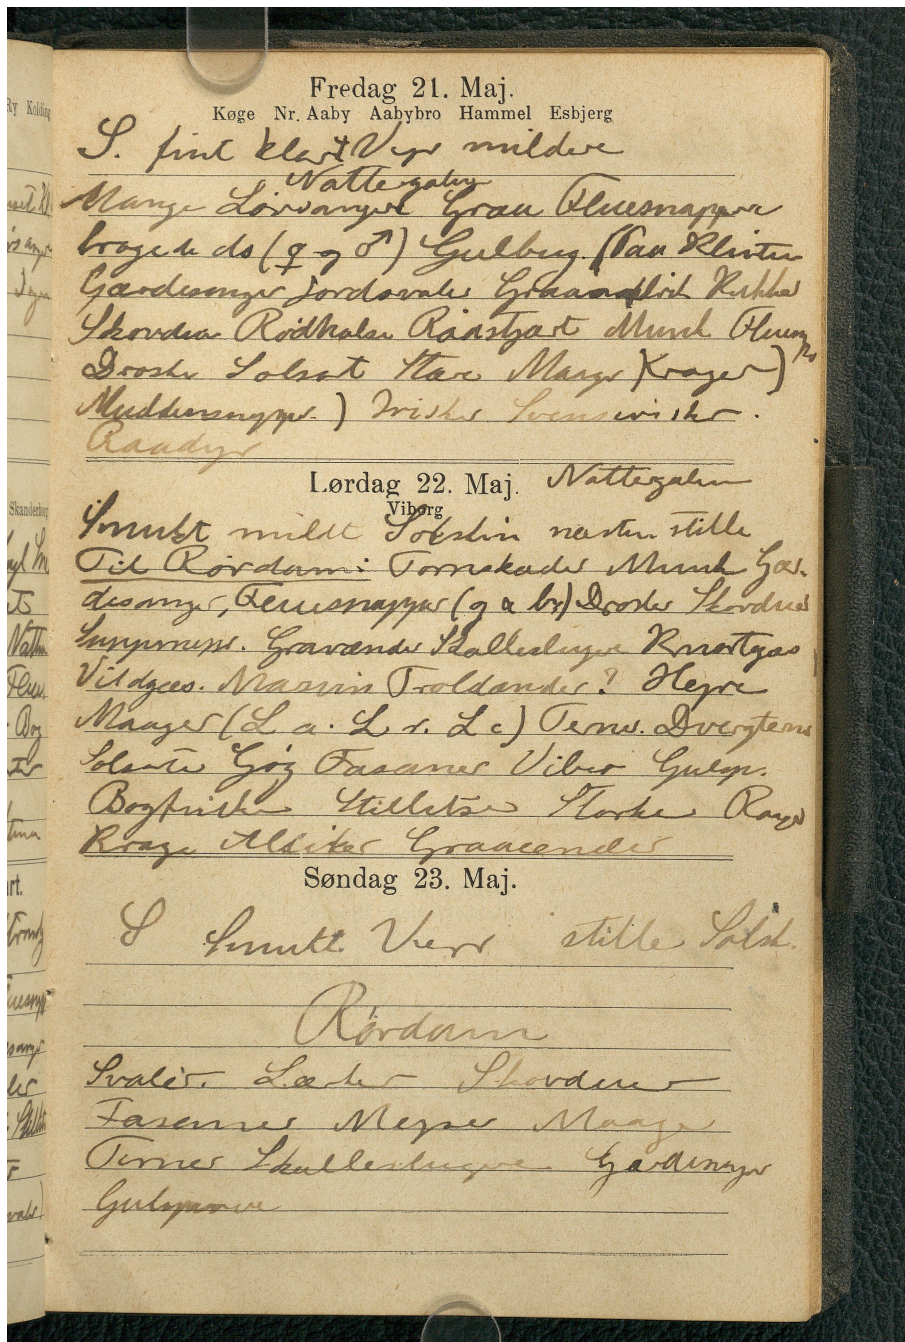 Fredag 21. Maj.
Køge Nr. Aaby Aabybro Hammel Esbjerg
S. fint klart Vejr mildere
Nattergalen
Mange Løvsangere Graa Fluesnappere
brogede do (♀ og ♂) Gulbug. (Paa Klinten
Gærdesanger Jordsvaler Graa Kukker
Skovduer Rødhalse Rødstjært Munk Fluesn
Drosler Solsort Stære Maager Krager)
Mudderсnepper.) Irisker Svensirisker.
Raadyr
Lørdag 22. Maj. Nattergalen
Viborg
Smukt mildt Solskin næsten stille
Til Rørdam: Tornskader Munk Gær-
desanger, Fluesnapper (g & br) Drosler Skovduer
Gravænder Skalleslugere Knortgæs
Vildgæs. Troldænder? Hejre
Maager (L a. L r. L c) Terner. Dværgterne
Solsorte Gøg Fasaner Viber Gulsp.
Bogfinker Stillitser Storke Rage
Krage Allike Graaænder
Søndag 23. Maj.
S Smukt Vejr stille Solsk.
Rørdam
Svaler. Lærker Skovduer
Fasaner Mejser Maage
Terner Skalleslugere Gærdesanger
Gulspurve